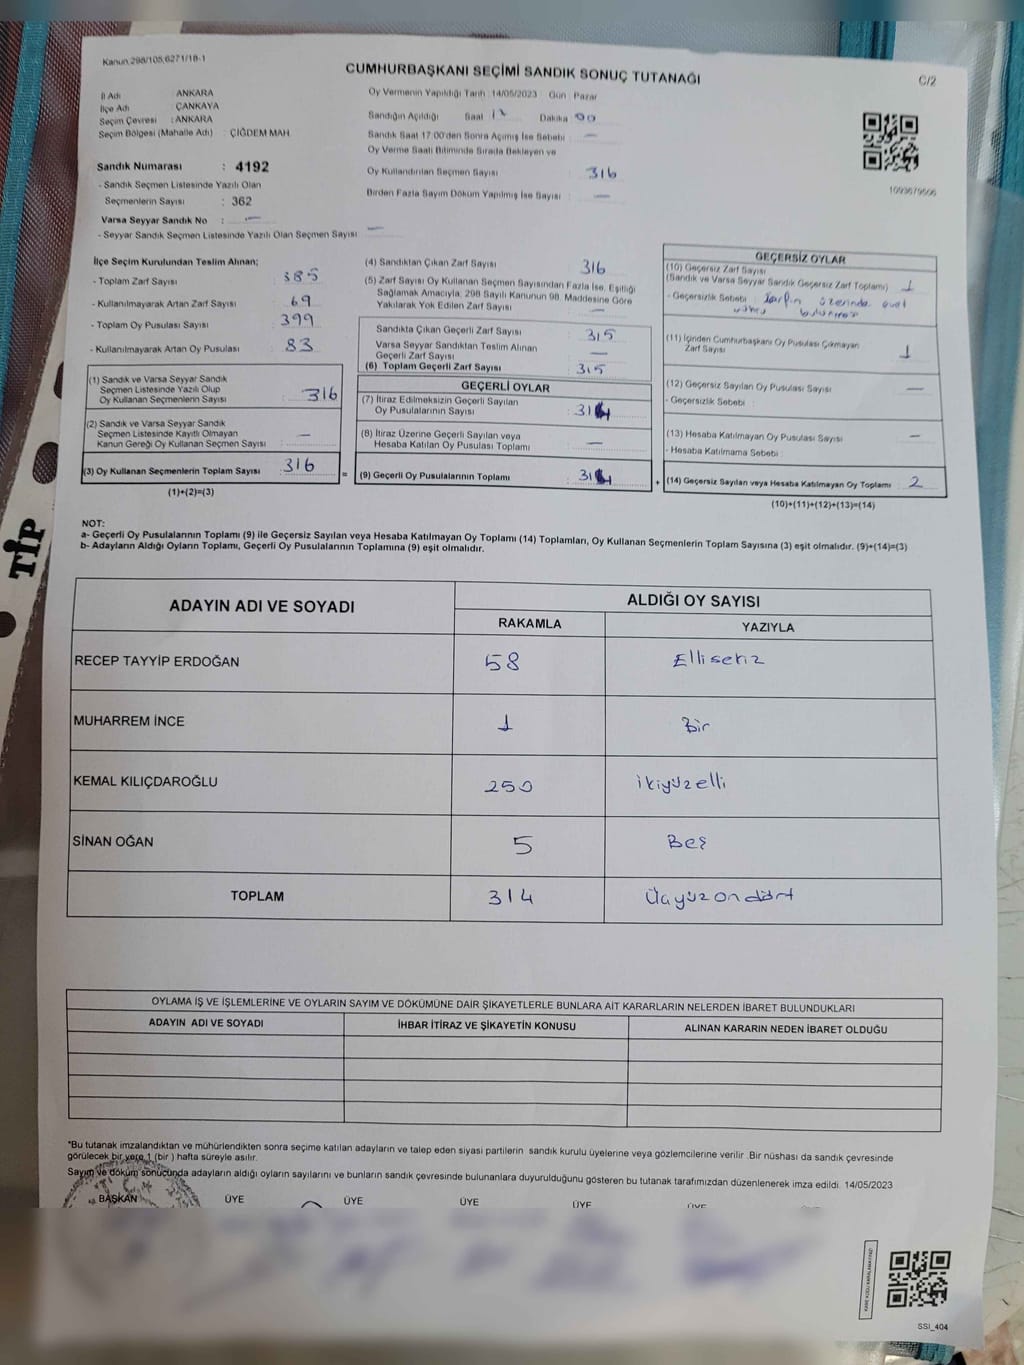 Kanun.298/105,6271/18-1
CUMHURBAŞKANI SEÇİMİ SANDIK SONUÇ TUTANAĞI
C/2
İl Adı : ANKARA
İlçe Adı : ÇANKAYA
Seçim Çevresi : ANKARA
Seçim Bölgesi (Mahalle Adı) : ÇİĞDEM MAH.
Sandık Numarası : 4192
- Sandık Seçmen Listesinde Yazılı Olan
Seçmenlerin Sayısı : 362
Varsa Seyyar Sandık No : —
- Seyyar Sandık Seçmen Listesinde Yazılı Olan Seçmen Sayısı : —
Oy Vermenin Yapıldığı Tarih : 14/05/2023 Gün : Pazar
Sandığın Açıldığı Saat Dakika 00
Sandık Saat 17:00'den Sonra Açılmış İse Sebebi : —
Oy Verme Saati Bitiminde Sırada Bekleyen ve
Oy Kullandırılan Seçmen Sayısı : 316
Birden Fazla Sayım Döküm Yapılmış İse Sayısı : —
1093679506
İlçe Seçim Kurulundan Teslim Alınan;
- Toplam Zarf Sayısı : 385
- Kullanılmayarak Artan Zarf Sayısı : 69
- Toplam Oy Pusulası Sayısı : 399
- Kullanılmayarak Artan Oy Pusulası : 83
(1) Sandık ve Varsa Seyyar Sandık
Seçmen Listesinde Yazılı Olup
Oy Kullanan Seçmenlerin Sayısı : 316
(2) Sandık ve Varsa Seyyar Sandık
Seçmen Listesinde Kayıtlı Olmayan
Kanun Gereği Oy Kullanan Seçmen Sayısı : —
(3) Oy Kullanan Seçmenlerin Toplam Sayısı : 316
(1)+(2)=(3)
=
(4) Sandıktan Çıkan Zarf Sayısı : 316
(5) Zarf Sayısı Oy Kullanan Seçmen Sayısından Fazla İse, Eşitliği
Sağlamak Amacıyla, 298 Sayılı Kanunun 98. Maddesine Göre
Yakılarak Yok Edilen Zarf Sayısı : —
Sandıkta Çıkan Geçerli Zarf Sayısı : 315
Varsa Seyyar Sandıktan Teslim Alınan
Geçerli Zarf Sayısı : —
(6) Toplam Geçerli Zarf Sayısı : 315
GEÇERLİ OYLAR
(7) İtiraz Edilmeksizin Geçerli Sayılan
Oy Pusulalarının Sayısı : 314
(8) İtiraz Üzerine Geçerli Sayılan veya
Hesaba Katılan Oy Pusulası Toplamı : —
(9) Geçerli Oy Pusulalarının Toplamı : 314
+
GEÇERSİZ OYLAR
(10) Geçersiz Zarf Sayısı
(Sandık ve Varsa Seyyar Sandık Geçersiz Zarf Toplamı) : 1
- Geçersizlik Sebebi : Zarfın üzerinde evet
mührü bulunması
(11) İçinden Cumhurbaşkanı Oy Pusulası Çıkmayan
Zarf Sayısı : 1
(12) Geçersiz Sayılan Oy Pusulası Sayısı : —
- Geçersizlik Sebebi :
(13) Hesaba Katılmayan Oy Pusulası Sayısı : —
- Hesaba Katılmama Sebebi :
(14) Geçersiz Sayılan veya Hesaba Katılmayan Oy Toplamı : 2
(10)+(11)+(12)+(13)=(14)
NOT:
a- Geçerli Oy Pusulalarının Toplamı (9) ile Geçersiz Sayılan veya Hesaba Katılmayan Oy Toplamı (14) Toplamları, Oy Kullanan Seçmenlerin Toplam Sayısına (3) eşit olmalıdır. (9)+(14)=(3)
b- Adayların Aldığı Oyların Toplamı, Geçerli Oy Pusulalarının Toplamına (9) eşit olmalıdır.
TİP
ADAYIN ADI VE SOYADI
ALDIĞI OY SAYISI
RAKAMLA YAZIYLA
RECEP TAYYİP ERDOĞAN 58 Ellisekiz
MUHARREM İNCE 1 Bir
KEMAL KILIÇDAROĞLU 250 ikiyüzelli
SİNAN OĞAN 5 Beş
TOPLAM 314 Üçyüzondört
OYLAMA İŞ VE İŞLEMLERİNE VE OYLARIN SAYIM VE DÖKÜMÜNE DAİR ŞİKAYETLERLE BUNLARA AİT KARARLARIN NELERDEN İBARET BULUNDUKLARI
ADAYIN ADI VE SOYADI İHBAR İTİRAZ VE ŞİKAYETİN KONUSU ALINAN KARARIN NEDEN İBARET OLDUĞU
*Bu tutanak imzalandıktan ve mühürlendikten sonra seçime katılan adayların ve talep eden siyasi partilerin sandık kurulu üyelerine veya gözlemcilerine verilir .Bir nüshası da sandık çevresinde
görülecek bir yere 1 (bir ) hafta süreyle asılır.
Sayım ve döküm sonucunda adayların aldığı oyların sayılarını ve bunların sandık çevresinde bulunanlara duyurulduğunu gösteren bu tutanak tarafımızdan düzenlenerek imza edildi. 14/05/2023
BAŞKAN ÜYE ÜYE ÜYE ÜYE ÜYE
KARE KODU KARALAMAYINIZ!
SSI_404